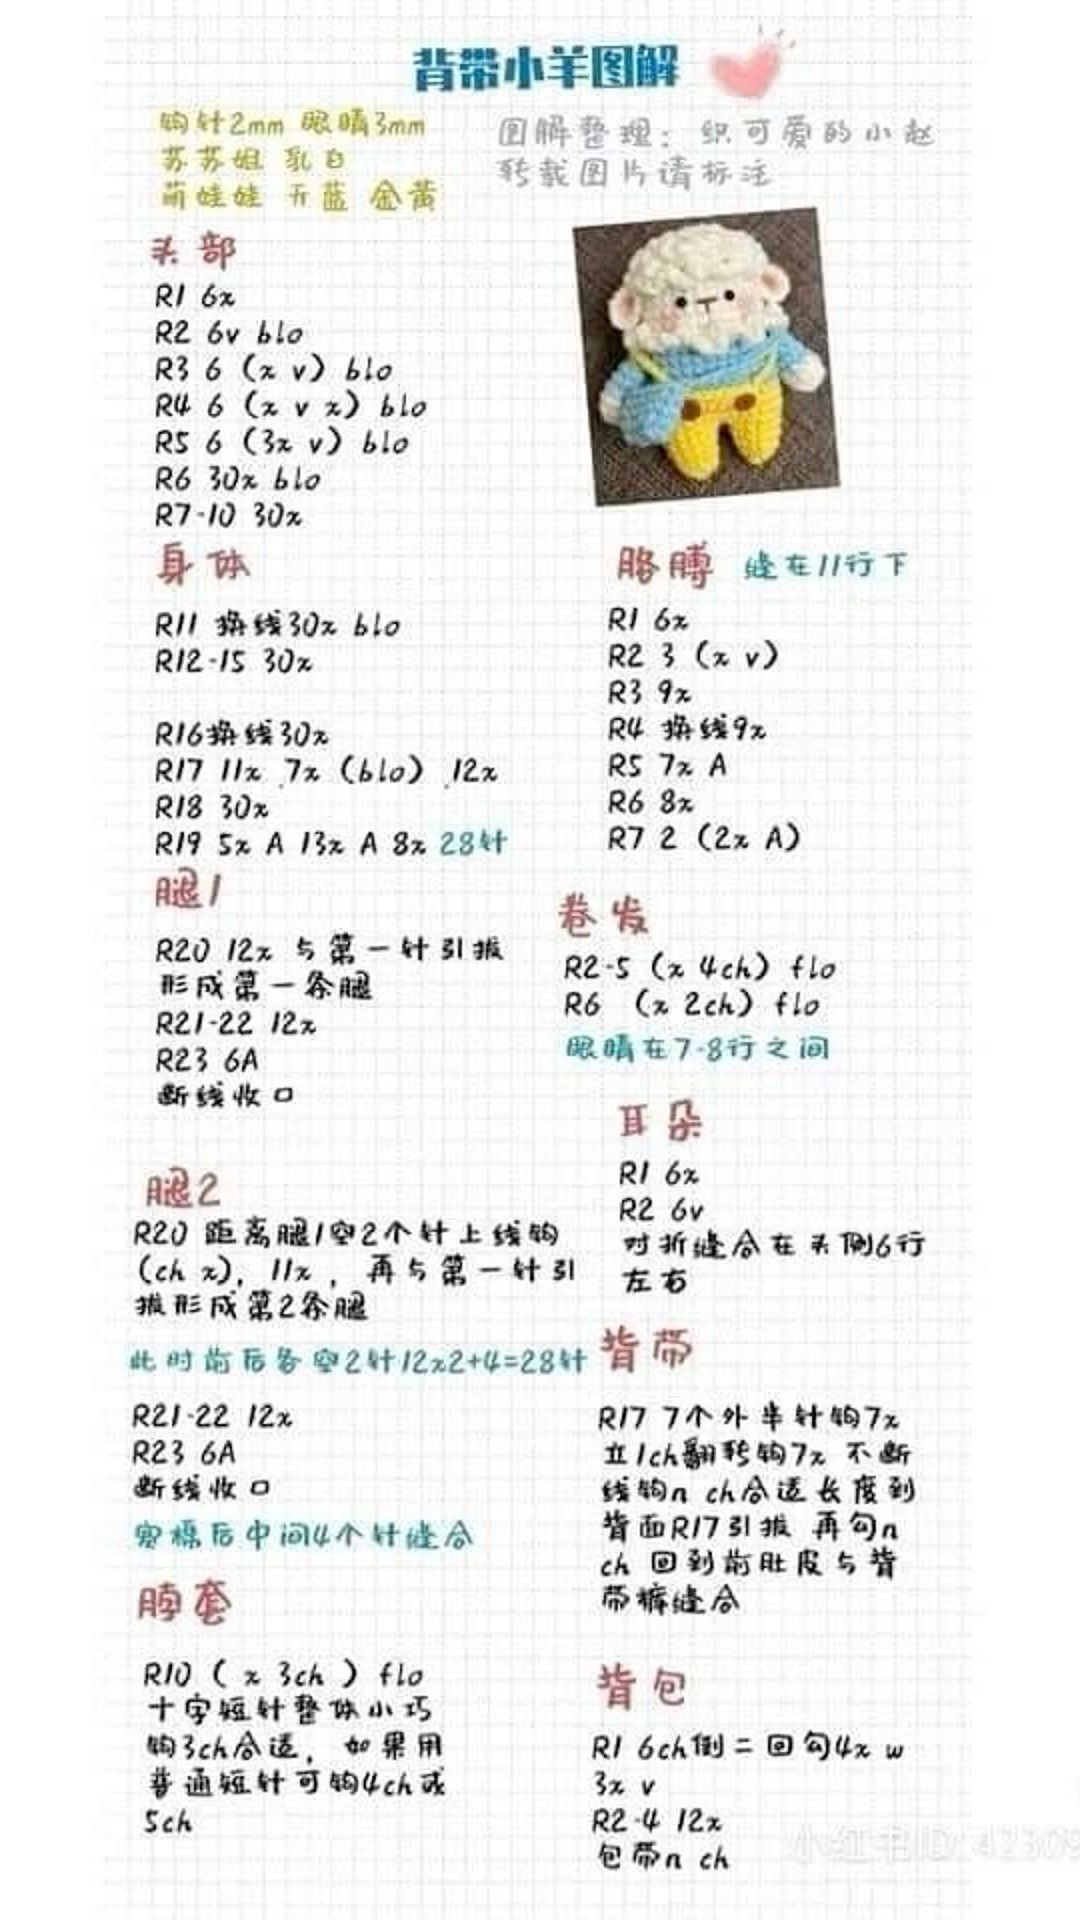 背带小羊图解
钩针2mm 眼睛3mm
苏苏姐 乳白
萌娃娃 天蓝 金黄
图解整理：织可爱的小赵
转载图片请标注
头部
R1 6x
R2 6v blo
R3 6（x v）blo
R4 6（x v x）blo
R5 6（3x v）blo
R6 30x blo
R7-10 30x
身体
R11 换线30x blo
R12-15 30x
R16换线30x
R17 11x 7x（blo）12x
R18 30x
R19 5x A 13x A 8x 28针
腿1
R20 12x 与第一针引拔
形成第一条腿
R21-22 12x
R23 6A
断线收口
腿2
R20 距离腿1空2个针上线钩
(ch x)，11x，再与第一针引
拔形成第2条腿
此时前后各空2针12x2+4=28针
R21-22 12x
R23 6A
断线收口
塞棉后中间4个针缝合
脖套
R10（x 3ch）flo
十字短针整体小巧
钩3ch合适，如果用
普通短针可钩4ch或
5ch
胳膊 缝在11行下
R1 6x
R2 3（x v）
R3 9x
R4 换线9x
R5 7x A
R6 8x
R7 2（2x A）
卷发
R2-5（x 4ch）flo
R6 （x 2ch）flo
眼睛在7-8行之间
耳朵
R1 6x
R2 6v
对折缝合在头侧6行
左右
背带
R17 7个外半针钩7x
立1ch翻转钩7x 不断
线钩n ch合适长度到
背面R17引拔 再勾n
ch 回到前肚皮与背
带裤缝合
背包
R1 6ch倒二回勾4x w
3x v
R2-4 12x
包带n ch
小红书ID: 42309